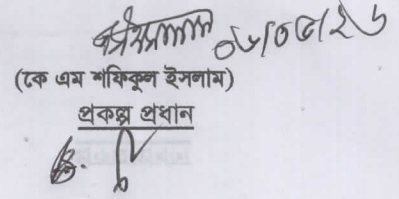 ০৮/০৩/২৬
(কে এম শফিকুল ইসলাম)
প্রকল্প প্রধান